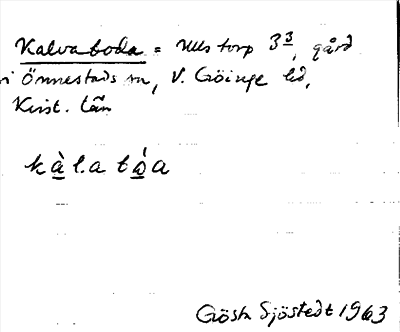 Kalvaboda = Ullstorp 3³, gård
i Önnestads sn, V. Göinge hd,
Krist. län
kàl.a bóa
Gösta Sjöstedt 1963